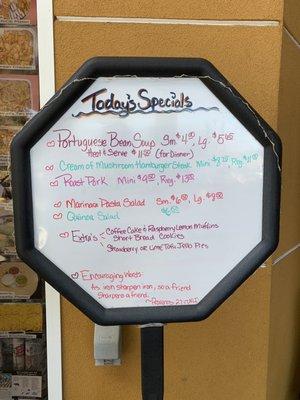 Today's Specials
Portuguese Bean Soup Sm. $4, Lg. $5.50
Heat & Serve $11.00 (for Dinner)
Cream of Mushroom Hamburger Steak Mini Reg.
Roast Pork Mini $9.50, Reg. $13.00
Marinara Pasta Salad Sm. $6.00, Lg. $9.00
Quinoa Salad
Extra's Coffee Cake & Raspberry Lemon Muffins
Short Bread Cookies
Strawberry or Lime Tofu Jello Pies
Encouraging Words-
As iron sharpen iron, so a friend
Sharpens a friend.
~Proverbs 27:17